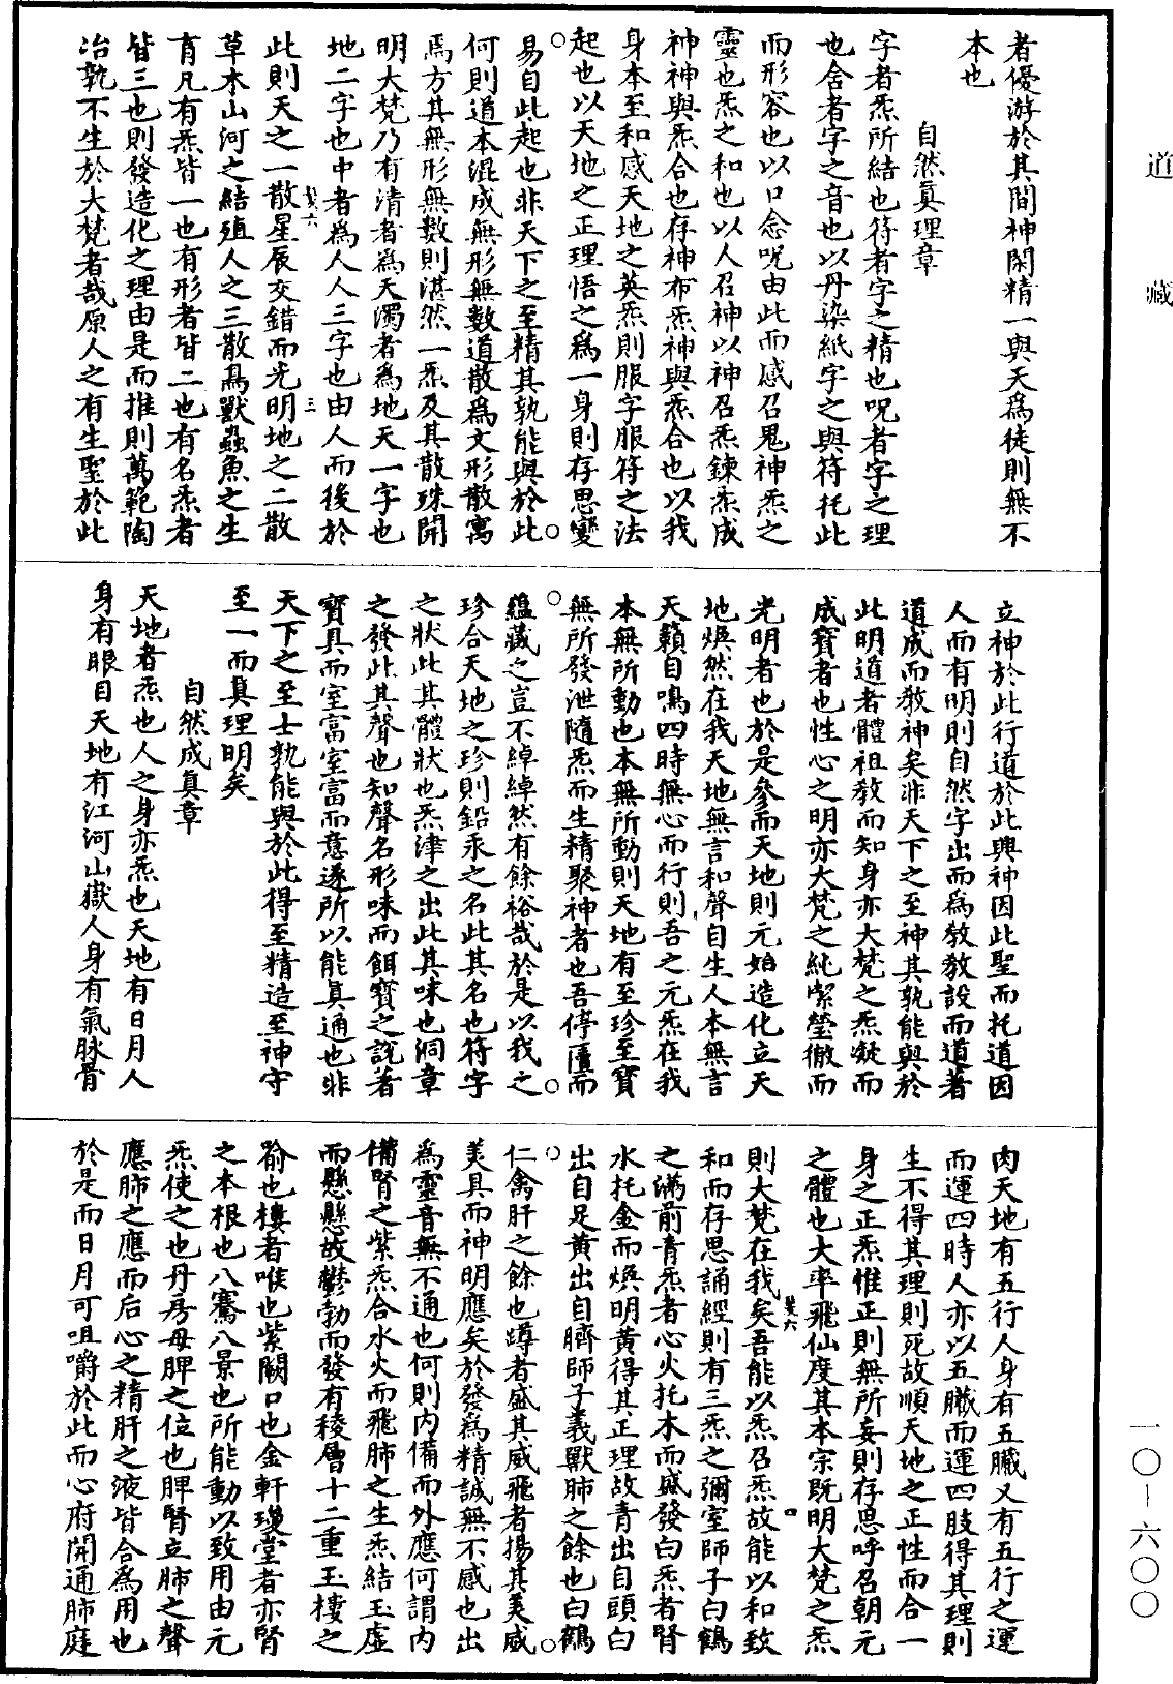 道藏
者優游於其間神閑精一與天為徒則無不
本也
自然真理章
字者炁所結也符者字之精也呪者字之理
也舍者字之音也以丹染紙字之與符托此
而形容也以口念呪由此而感召鬼神炁之
靈也炁之和也以人召神以神召炁鍊炁成
神神與炁合也存神布炁神與炁合也以我
身本至和感天地之英炁則服字服符之法
起也以天地之正理悟之為一身則存思變
易自此起也非天下之至精其孰能與於此
何則道本混成無形無數道散為文形散寓
焉方其無形無數則湛然一炁及其散殊開
明大梵乃有清者為天濁者為地天一字也
地二字也中者為人人三字也由人而後於
此則天之一散星辰交錯而光明地之二散
草木山河之結殖人之三散鳥獸蟲魚之生
育凡有炁皆一也有形者皆二也有名炁者
皆三也則發造化之理由是而推則萬範陶
冶孰不生於大梵者哉原人之有生聖於此
立神於此行道於此興神因此聖而托道因
人而有明則自然字出而為教教設而道著
道成而教神矣非天下之至神其孰能與於
此明道者體祖教而知身亦大梵之炁凝而
成寶者也性心之明亦大梵之純絜瑩徹而
光明者也於是參而天地則元始造化立天
地煥然在我天地無言和聲自生人本無言
天籟自鳴四時無心而行則吾之元炁在我
本無所動也本無所動則天地有至珍至寶
無所發泄隨炁而生精聚神者也吾停匱而
蘊藏之豈不綽綽然有餘裕哉於是以我之
珍合天地之珍則鉛汞之名此其名也符字
之狀此其體狀也炁津之出此其味也洞章
之發此其聲也知聲名形味而餌寶之說著
寶具而室富室富而意遂所以能真通也非
天下之至士孰能與於此得至精造至神守
至一而真理明矣
自然成真章
天地者炁也人之身亦炁也天地有日月人
身有眼目天地有江河山嶽人身有氣脉骨
肉天地有五行人身有五臟又有五行之運
而運四時人亦以五臟而運四肢得其理則
生不得其理則死故順天地之正性而合一
身之正炁惟正則無所妄則存思呼召朝元
之體也大率飛仙度其本宗既明大梵之炁
則大梵在我矣吾能以炁召炁故能以和致
和而存思誦經則有三炁之彌室師子白鶴
之滿前青炁者心火托木而盛發白炁者腎
水托金而煥明黃得其正理故青出自頭白
出自足黃出自臍師子義獸肺之餘也白鶴
仁禽肝之餘也蹲者盛其威飛者揚其美威
美具而神明應矣於發為精誠無不感也出
為靈音無不通也何則內備而外應何謂內
備腎之紫炁合水火而飛肺之生炁結玉虛
而懸懸故鬱勃而發有稜層十二重玉樓之
踰也樓者喉也紫闕口也金軒瓊堂者亦腎
之本根也八騫八景也所能動以致用由元
炁使之也丹房母脾之位也脾腎立肺之聲
應肺之應而后心之精肝之液皆合為用也
於是而日月可咀嚼於此而心府開通肺庭
一〇－六〇〇